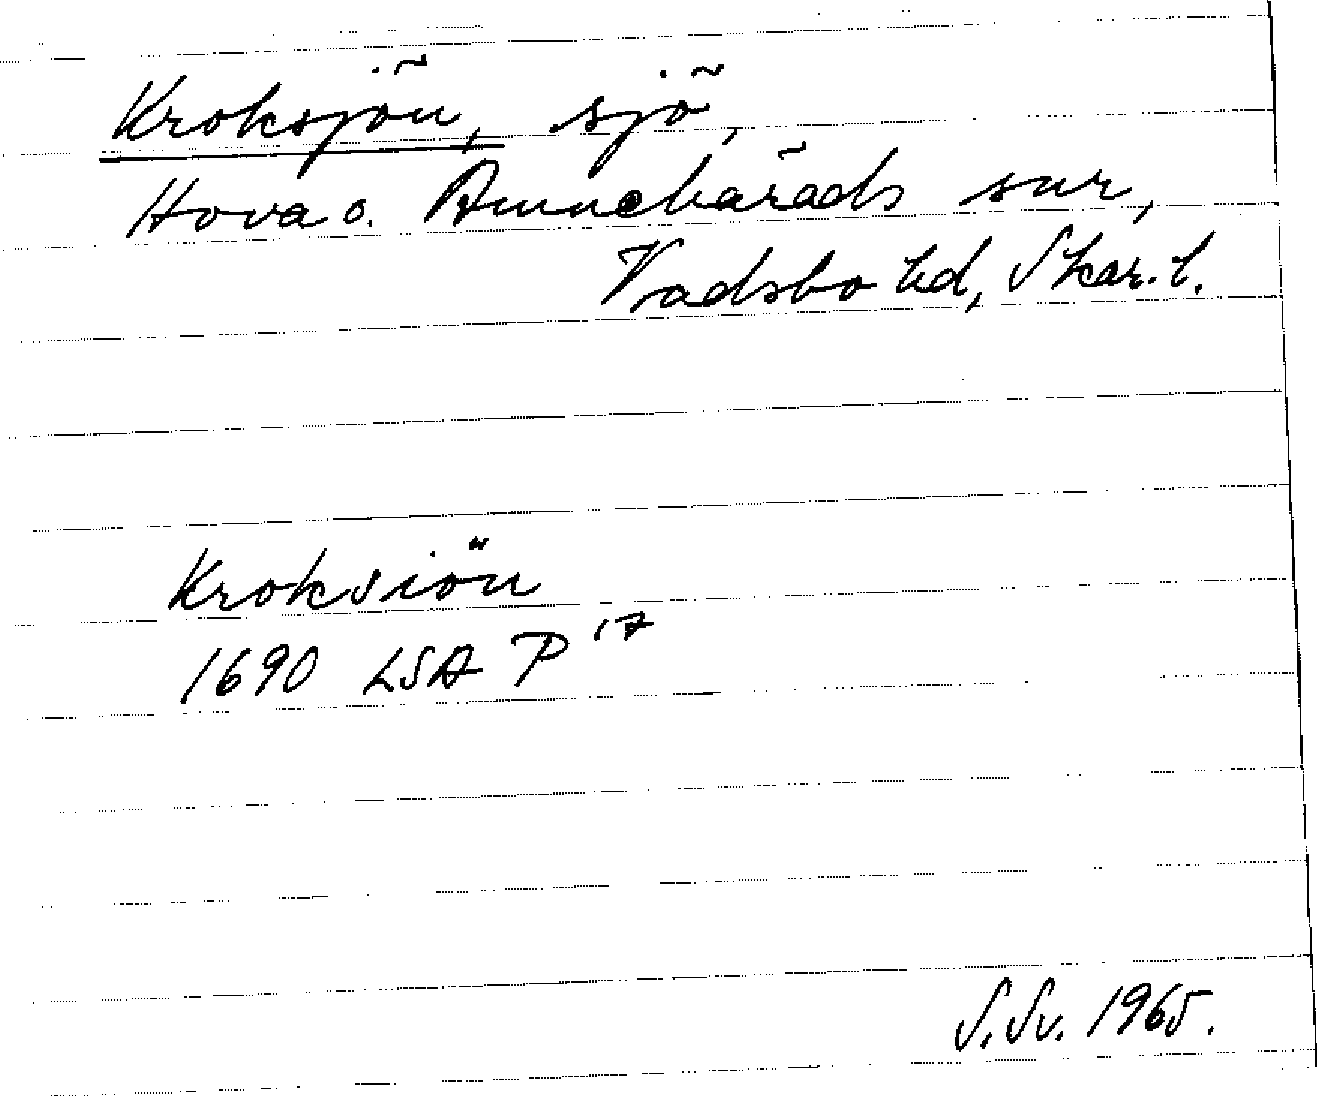 Kroksjön, sjö,
Hova o. Amnehärads snr,
Vadsbo hd, Skar. l.
Kroksiön
1690 LSA P 17
S. Sv. 1965.